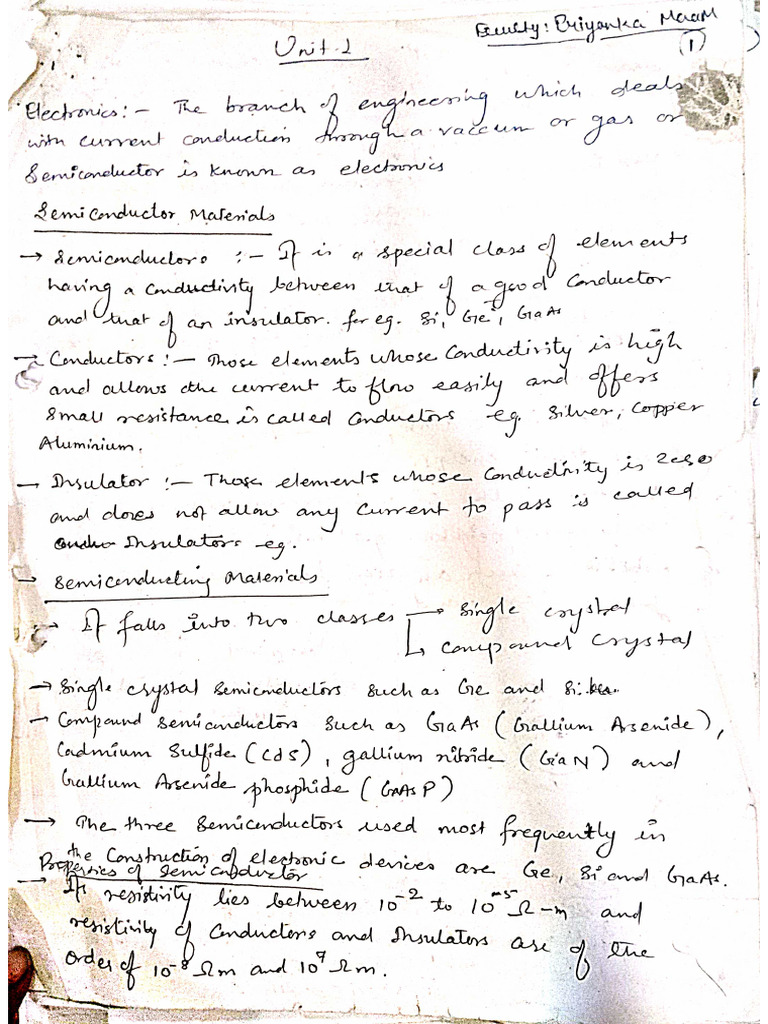 Faculty: Priyanka MaaM
Unit-1
(1)
Electronics:- The branch of engineering which deals
with current conduction through a vaccum or gas or
Semiconductor is known as electronics
Semiconductor Materials
→ Semiconductors :- It is a special class of elements
having a conductivity between that of a good conductor
and that of an insulator. for eg. Si, Ge, GaAs
→ Conductors :- Those elements whose conductivity is high
and allows the current to flow easily and offers
small resistance is called conductors eg. Silver, Copper
Aluminium.
→ Insulator :- Those elements whose conductivity is zero
and does not allow any current to pass is called
Insulators eg.
→ Semiconducting Materials
→ It falls into two classes → Single crystal
↳ Compound Crystal
→ Single crystal semiconductors such as Ge and Si.
→ Compound semiconductors such as GaAs (Gallium Arsenide),
Cadmium Sulfide (CdS), gallium nitride (GaN) and
Gallium Arsenide phosphide (GaAsP)
→ The three semiconductors used most frequently in
the Construction of electronic devices are Ge, Si and GaAs.
Properties of Semiconductor
→ It resistivity lies between 10⁻² to 10 Ω-m and
resistivity of Conductors and Insulators are of the
order of 10⁻⁸ Ωm and 10⁷ Ωm.